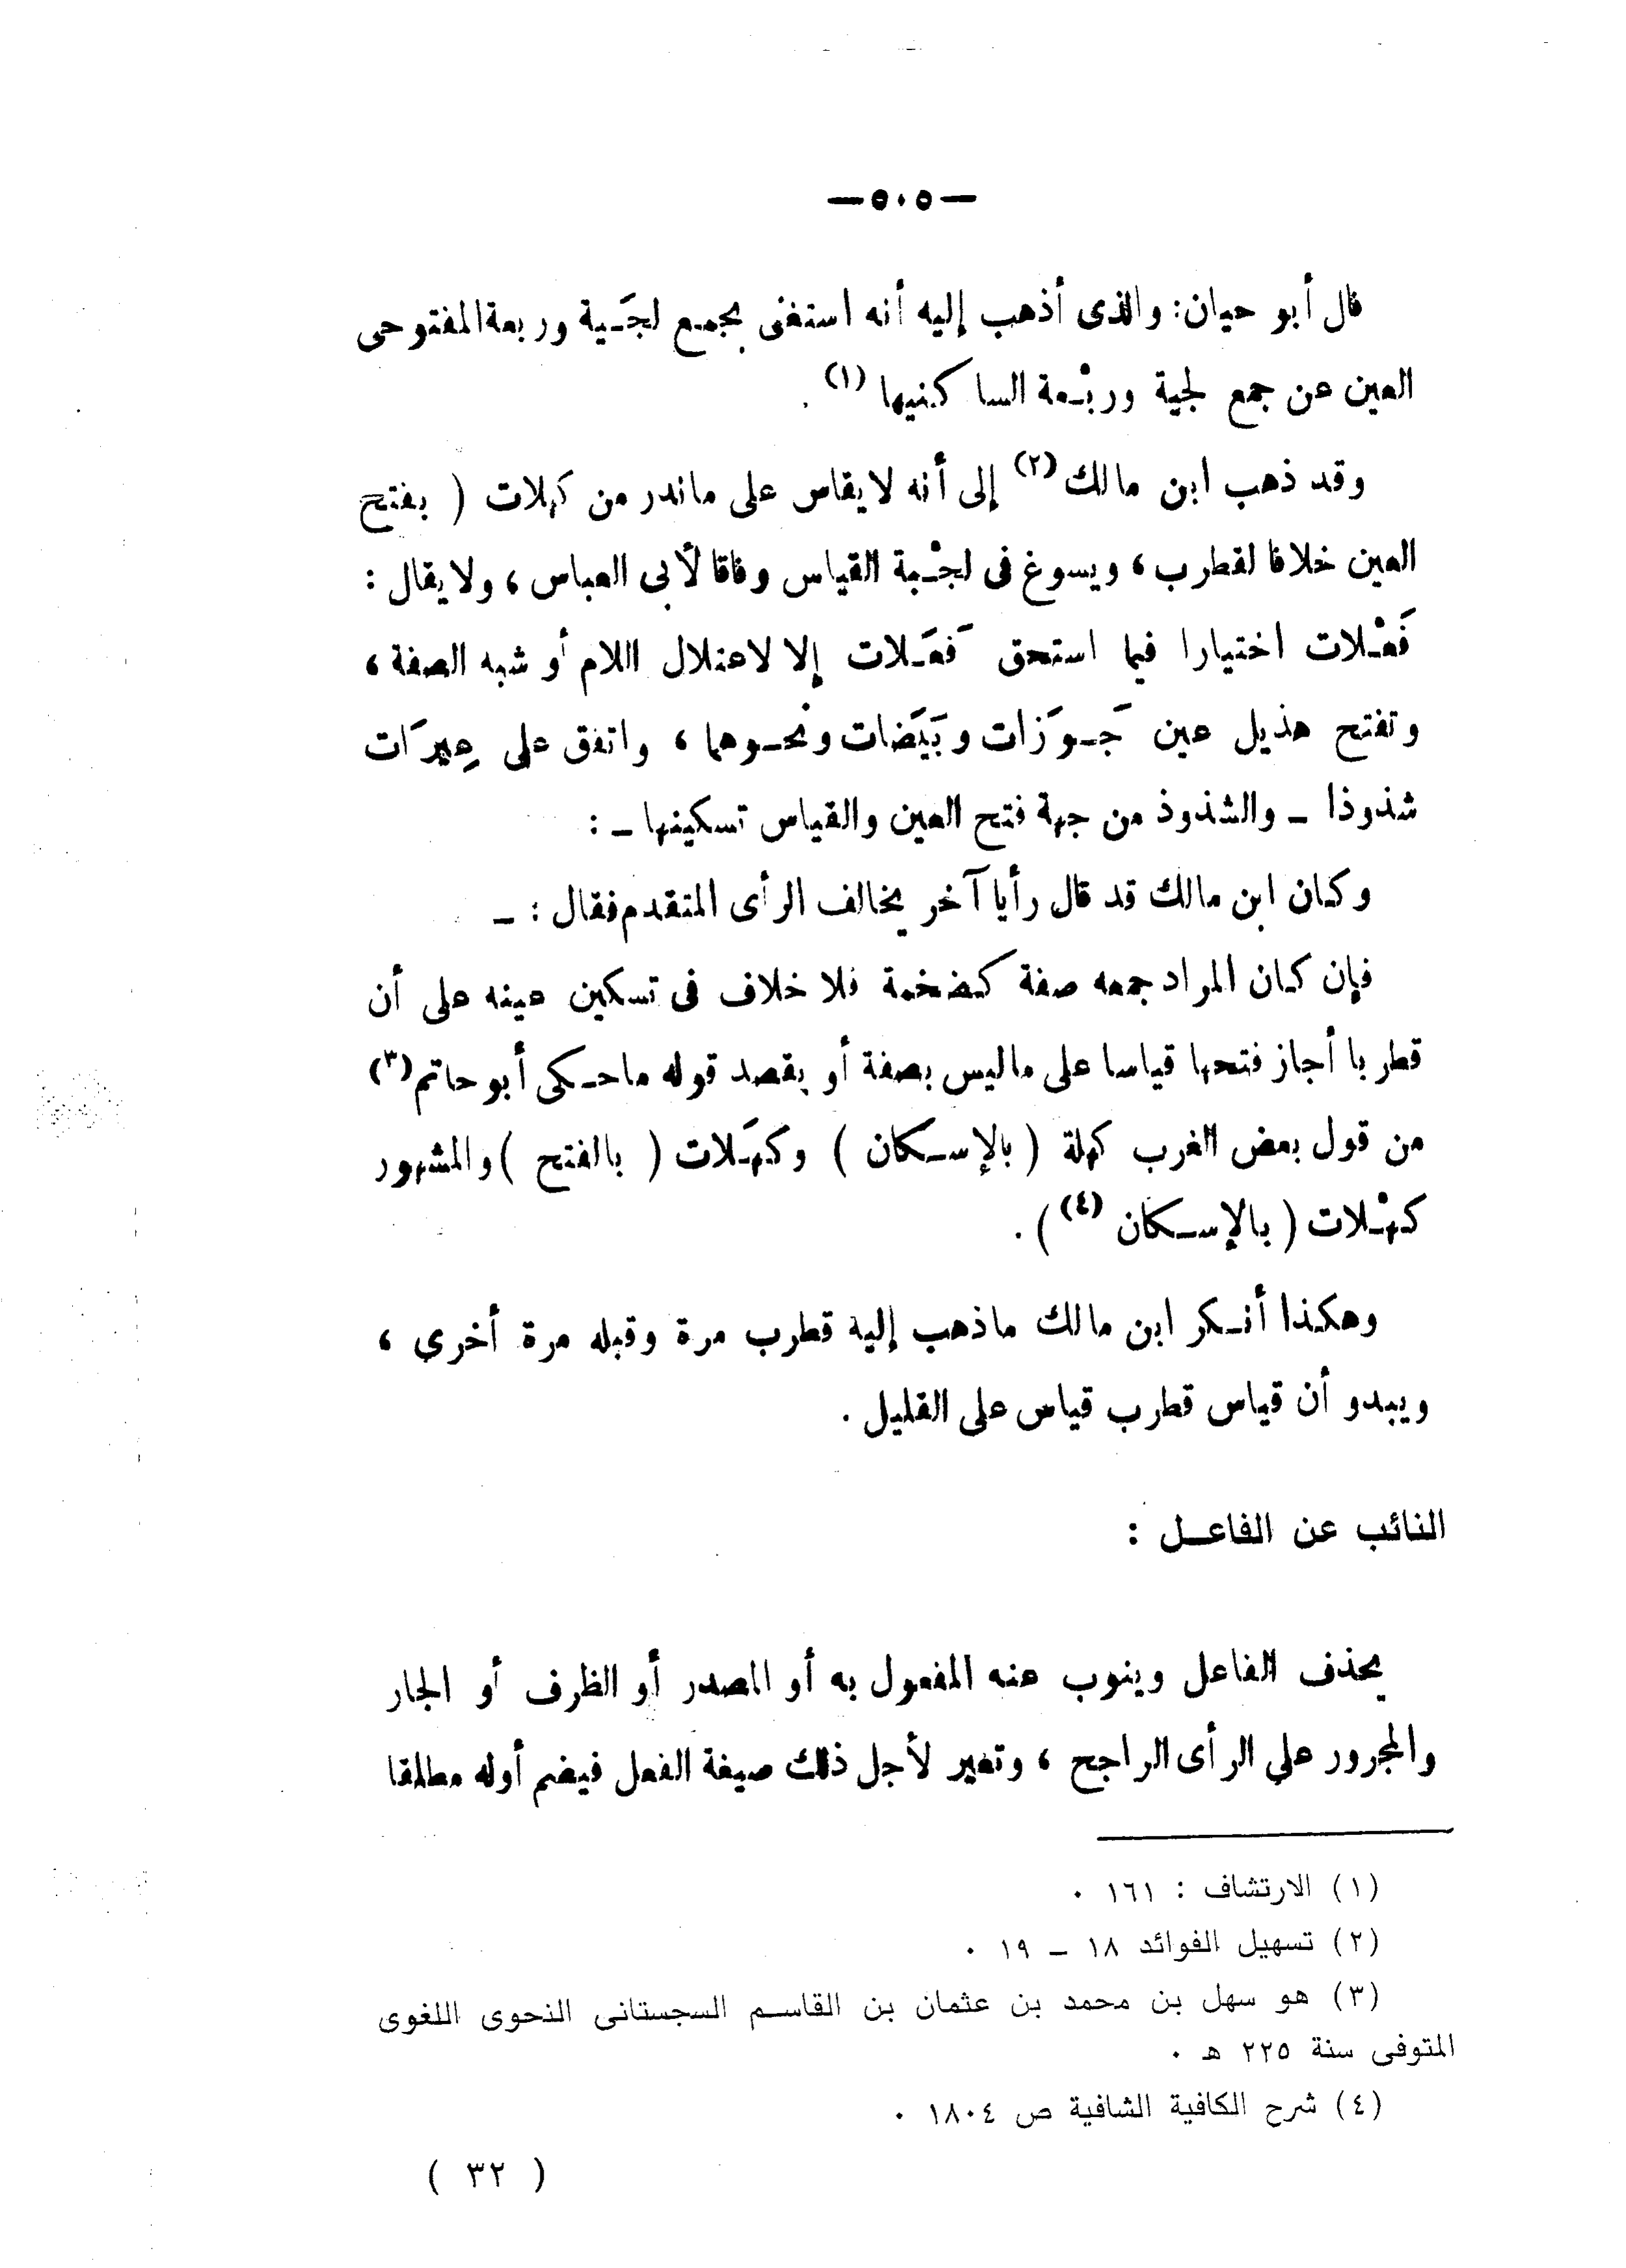 —٥٠٥—
قال أبو حيان: والذى أذهب إليه أنه استغنى بجمع لجَـية وربعة المفتوحى
العين عن جمع لجية وربْـعة الساكنيها (١) .
وقد ذهب ابن مالك (٢) إلى أنه لا يقاس على ماندر من كهلات ( بفتح
العين خلافا لقطرب ، ويسوغ فى لجْـبة القياس وفاقا لأبى العباس ، ولا يقال :
فَعْـلات اختيارا فيما استحق فَعَـلات إلا لاعتلال اللام أو شبه الصفة ،
وتفتح هذيل عين جَـوَزات وبَيَضات ونحـوهما ، واتفق على عِيرَات
شذوذا ـ والشذوذ من جهة فتح العين والقياس تسكينها ـ :
وكان ابن مالك قد قال رأيا آخر يخالف الرأى المتقدم فقال : ـ
فإن كان المراد جمعه صفة كـضخمة فلا خلاف فى تسكين عينه على أن
قطربا أجاز فتحها قياسا على ماليس بصفة أو يقصد قوله ماحـكى أبو حاتم (٣)
من قول بعض الغرب كهلة ( بالإسـكان ) وكهَـلات ( بالفتح ) والمشهور
كهْـلات ( بالإسـكان (٤) ) .
وهكذا أنـكر ابن مالك ماذهب إلية قطرب مرة وقبله مرة أخرى ،
ويبدو أن قياس قطرب قياس على القليل .
النائب عن الفاعـل :
يحذف الفاعل وينوب عنه المفعول به أو المصدر أو الظرف أو الجار
والمجرور على الرأى الراجح ، وتغير لأجل ذلك صيغة الفعل فيضم أوله مطلقا
(١) الارتشاف : ١٦١ ٠
(٢) تسهيل الفوائد ١٨ ـ ١٩ ٠
(٣) هو سهل بن محمد بن عثمان بن القاسـم السجستانى النحوى اللغوى
المتوفى سنة ٢٢٥ هـ ٠
(٤) شرح الكافية الشافية ص ١٨٠٤ ٠
( ٣٢ )